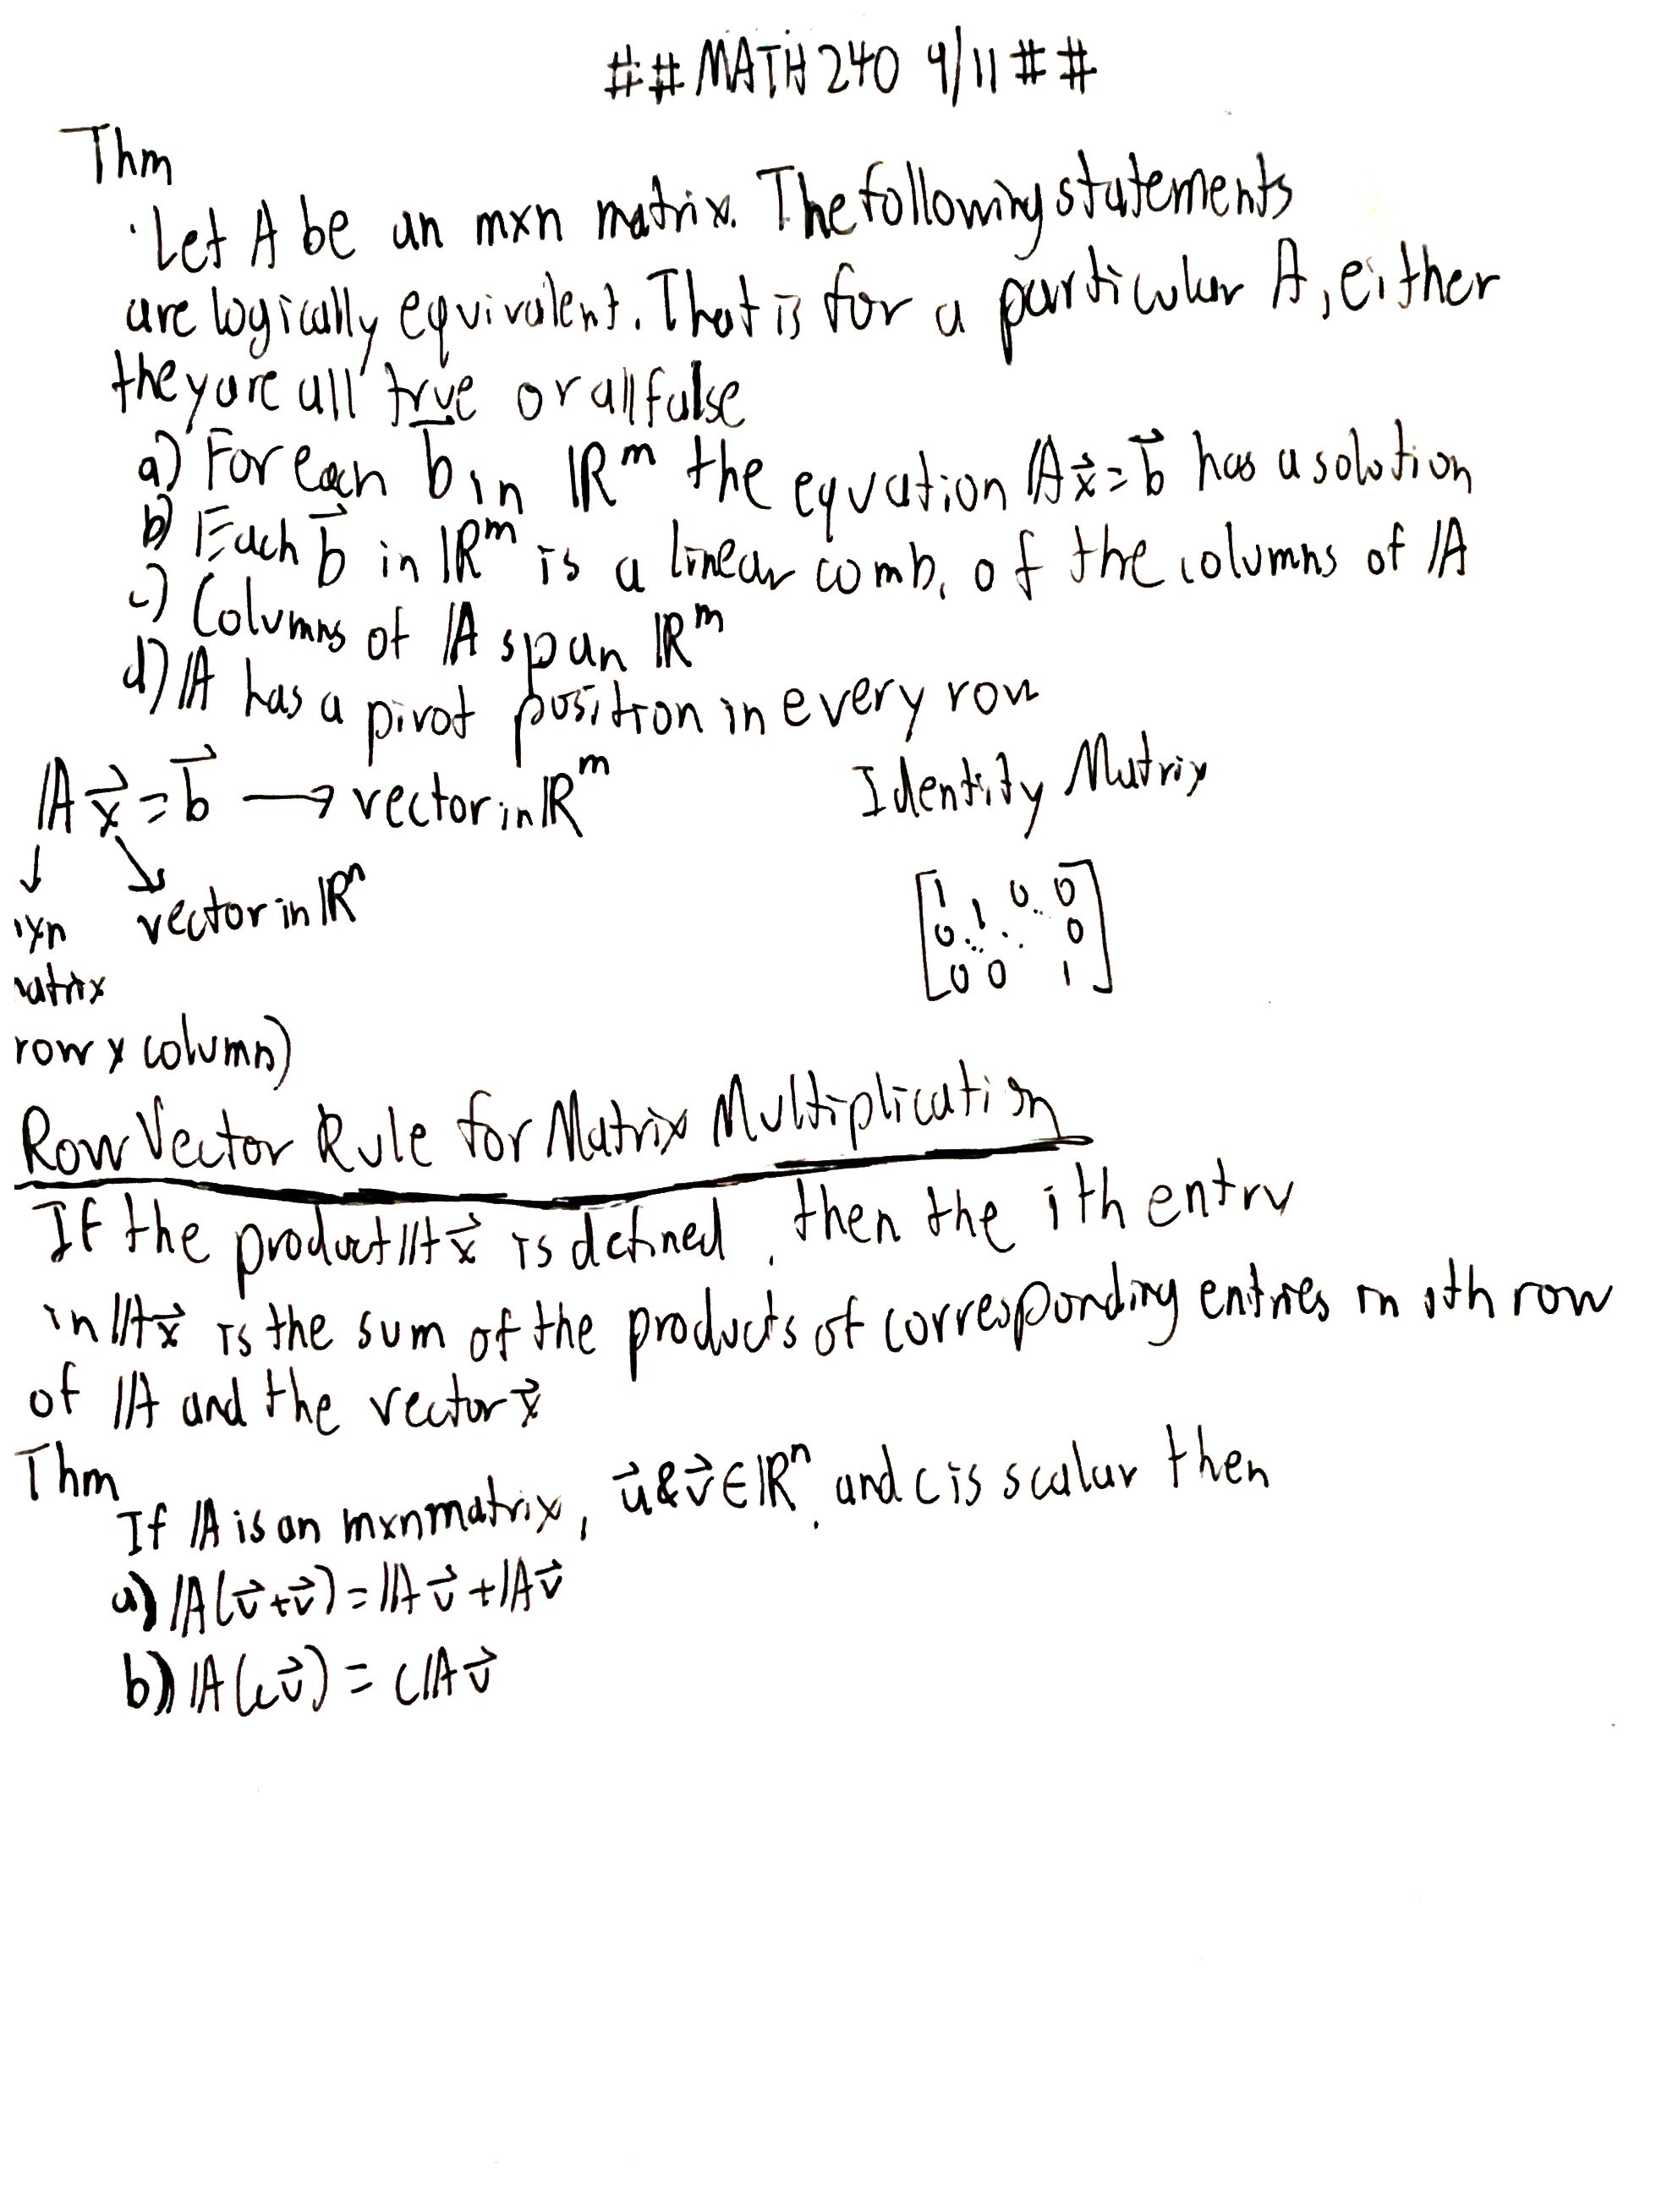 ##MATH 240 9/11##
Thm
·Let A be an mxn matrix. The following statements
are logically equivalent. That is for a particular A, either
they are all true or all false
a) For each b⃗ in ℝᵐ the equation Ax⃗=b⃗ has a solution
b) Each b⃗ in ℝᵐ is a linear comb. of the columns of A
c) Columns of A span ℝᵐ
d) A has a pivot position in every row
Ax⃗=b⃗ → vector in ℝᵐ
↓ ↘
xn vector in ℝⁿ
atrix
row x column)
Identity Matrix
1 0.. 0
0 1 . 0
0 0 1
Row Vector Rule for Matrix Multiplication
If the product Ax⃗ is defined, then the ith entry
in Ax⃗ is the sum of the products of corresponding entries in ith row
of A and the vector x⃗
Thm
If A is an mxn matrix, u⃗ & v⃗ ∈ ℝⁿ, and c is scalar then
a) A(u⃗+v⃗) = Au⃗ + Av⃗
b) A(cu⃗) = cAu⃗